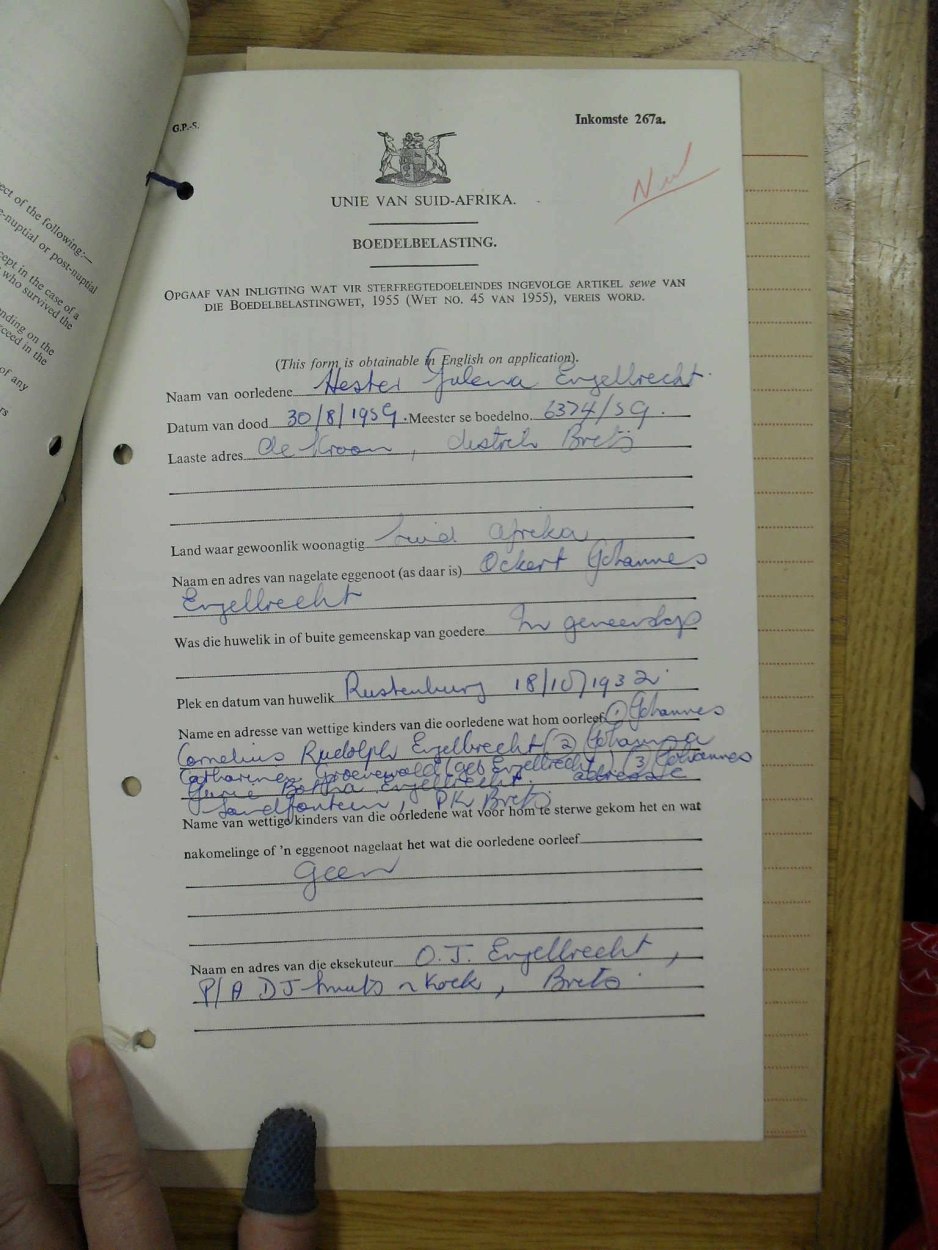 ect of the following:—
e-nuptial or post-nuptial
cept in the case of a
who survived the
nding on the
ceed in the
of any
rs
G.P.-S.
Inkomste 267a.
UNIE VAN SUID-AFRIKA.
BOEDELBELASTING.
OPGAAF VAN INLIGTING WAT VIR STERFREGTEDOELEINDES INGEVOLGE ARTIKEL sewe VAN
DIE BOEDELBELASTINGWET, 1955 (WET NO. 45 VAN 1955), VEREIS WORD.
(This form is obtainable in English on application).
Naam van oorledene Hester Engelbrecht.
Datum van dood 30/8/1959. Meester se boedelno. 6374/59.
Laaste adres de Kroon, distrik Brits
Land waar gewoonlik woonagtig Suid Afrika
Naam en adres van nagelate eggenoot (as daar is) Ockert Johannes
Engelbrecht
Was die huwelik in of buite gemeenskap van goedere In gemeenskap
Plek en datum van huwelik Rustenburg 18/10/1932.
Name en adresse van wettige kinders van die oorledene wat hom oorleef (1) Johannes
Cornelius Rudolph Engelbrecht (2) Johanna
Catharina Groenewald (geb Engelbrecht) (3) Johannes
Botha Engelbrecht adresse
Zandfontein, PK Brits.
Name van wettige kinders van die oorledene wat voor hom te sterwe gekom het en wat
nakomelinge of 'n eggenoot nagelaat het wat die oorledene oorleef
Geen
Naam en adres van die eksekuteur O.J. Engelbrecht,
P/A DJ n Kock, Brits.